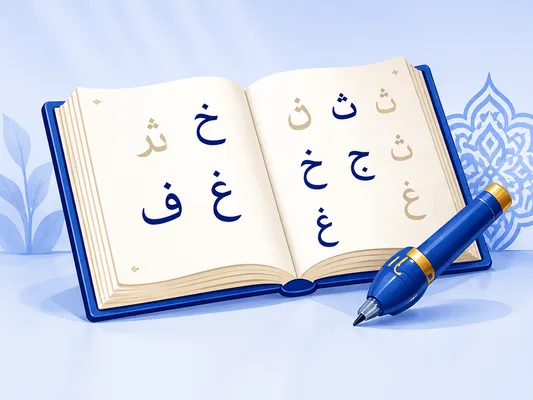 ث ث ن
ث ج خ
غ غ
خ ثر
غ ف